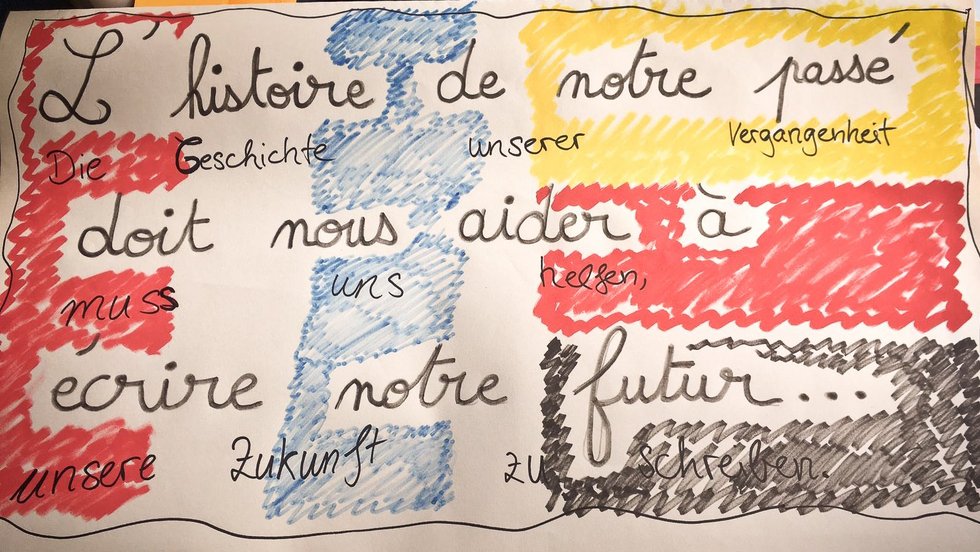 L'histoire de notre passé
Die Geschichte unserer Vergangenheit
doit nous aider à
muss uns helfen,
écrire notre futur...
unsere Zukunft zu schreiben.